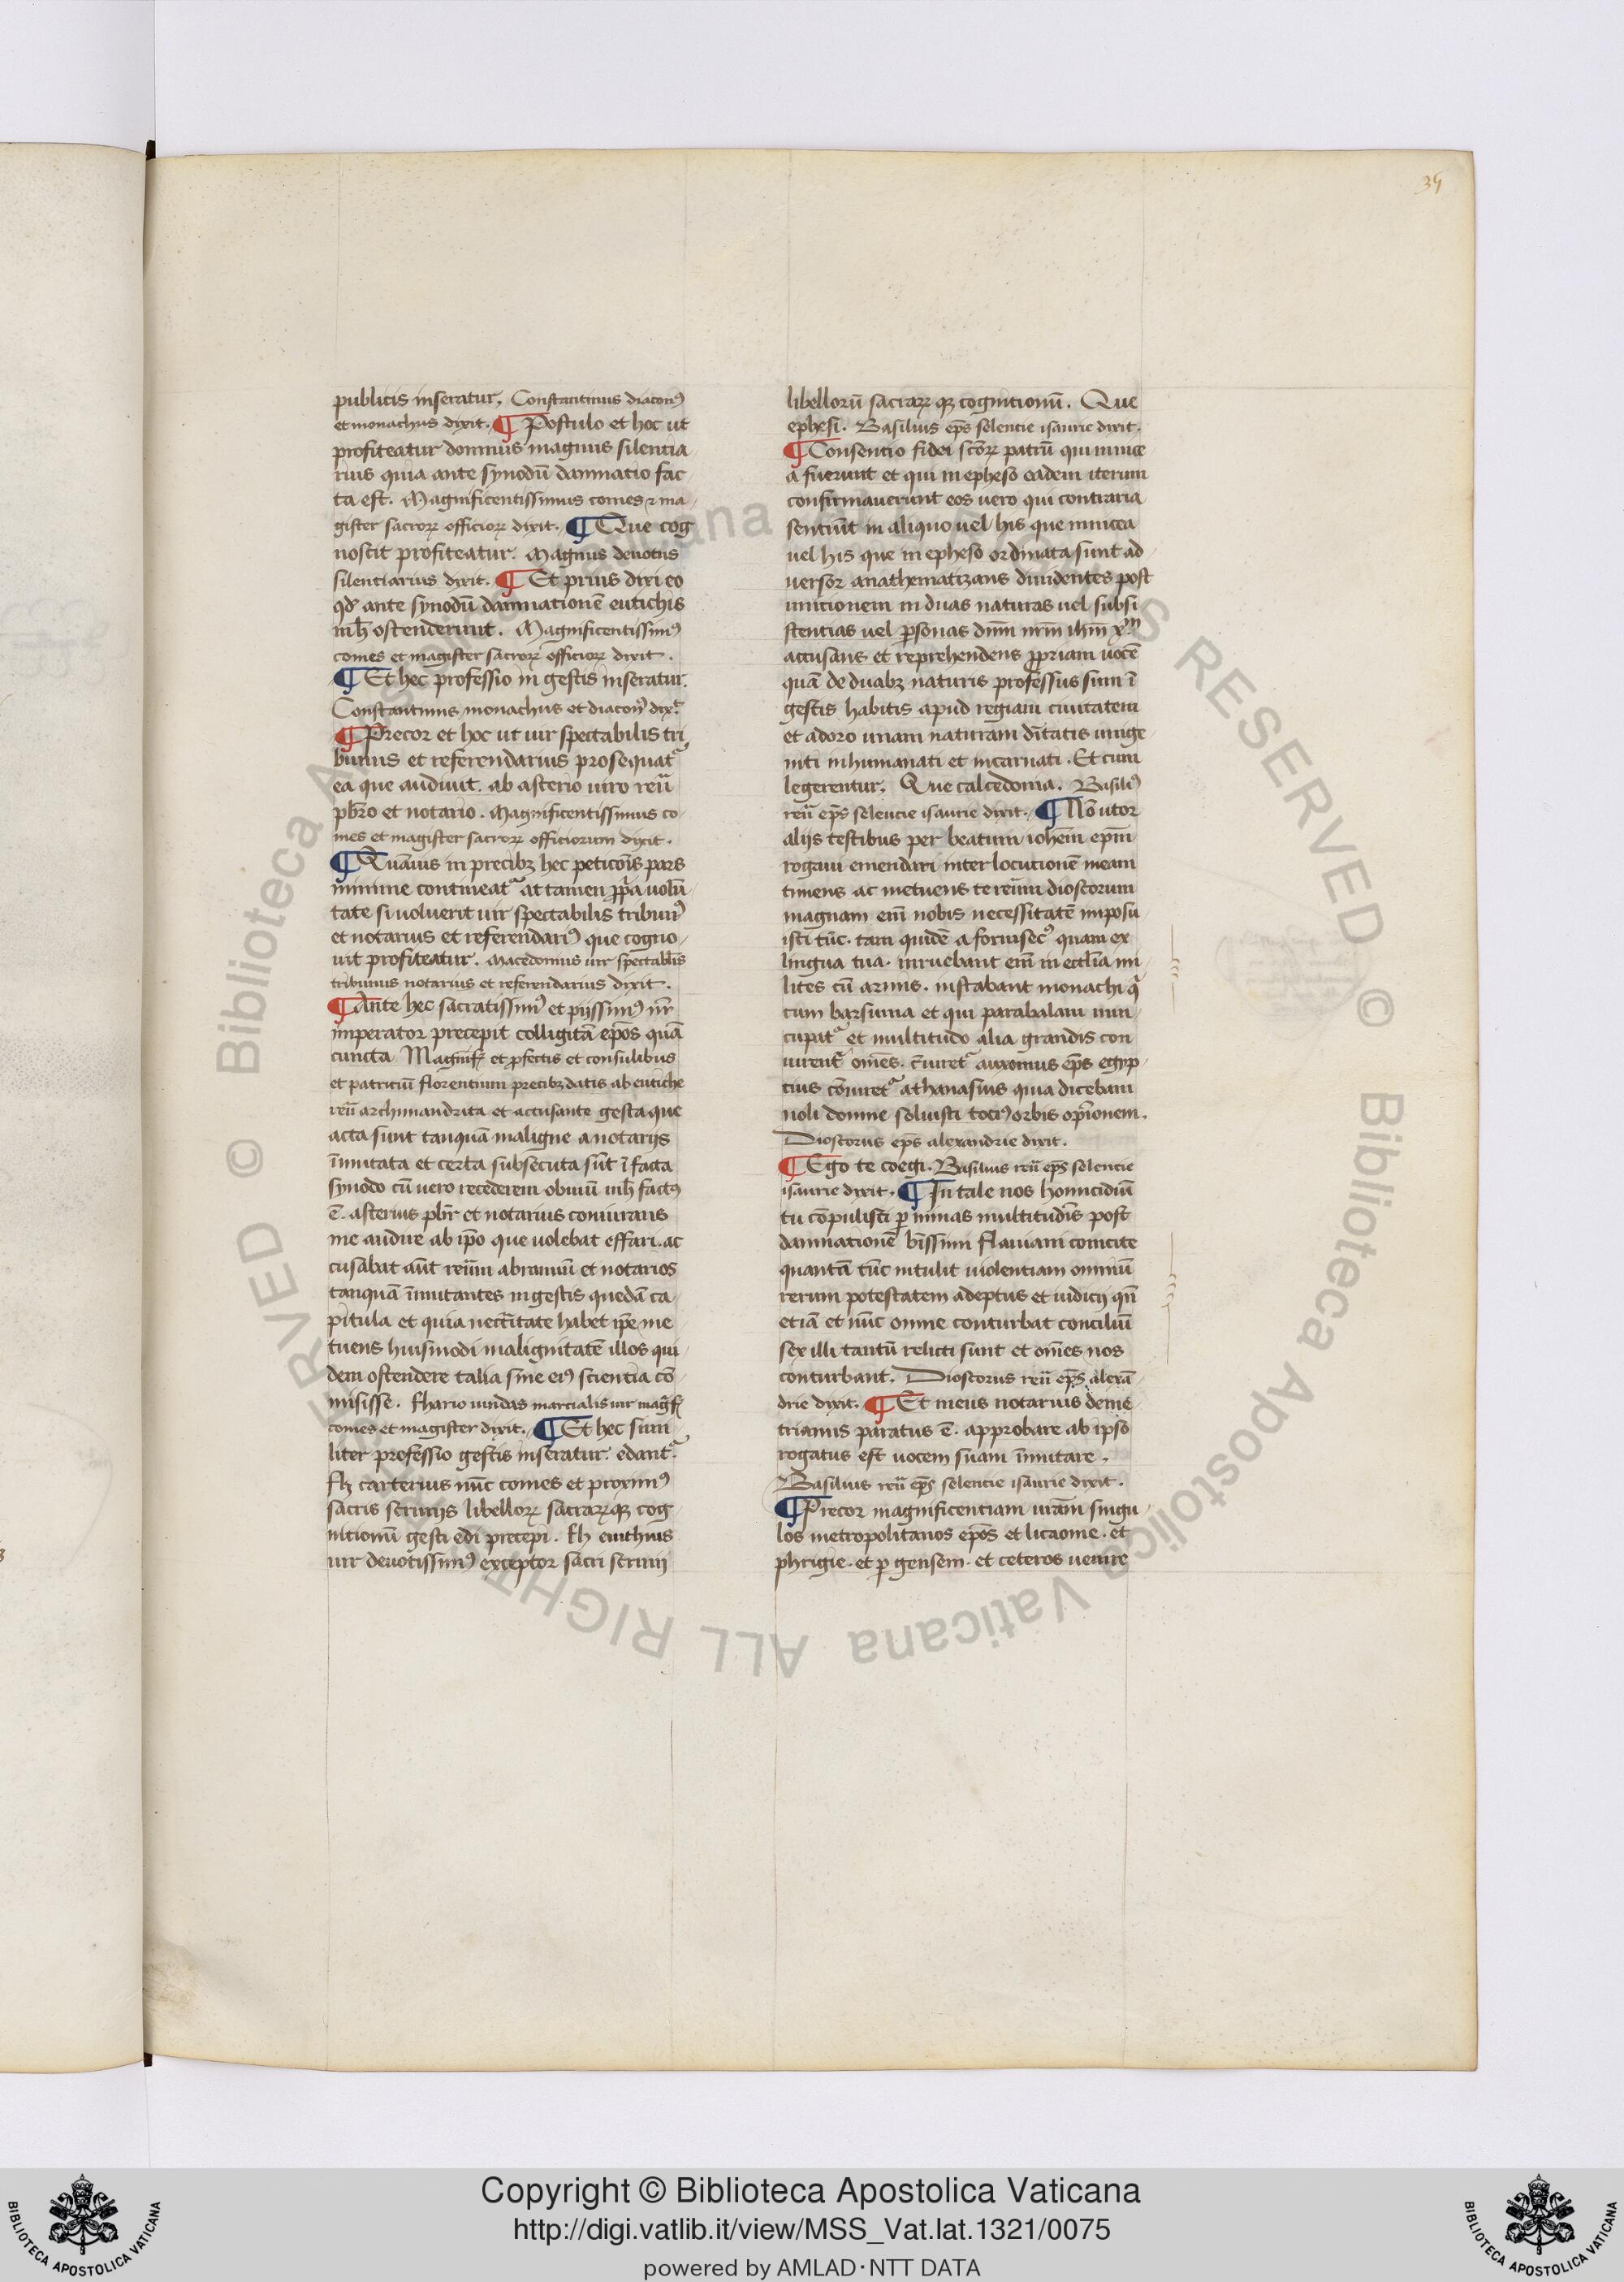 34
publicis inseratur. Constantinus diacon9
et monachus dixit. ¶ Postulo et hoc ut
profiteatur domnus magnus silentia
rius quia ante synodū damnatio fac
ta est. Magnificentissimus comes ⁊ ma
gister sacroꝝ officioꝝ dixit. ¶ Que cog
noscit profiteatur. Magnus deuotus
silentiarius dixit. ¶ Et prius dixi eo
qd ante synodū damnationē eutichis
mh̄ ostenderunt. Magnificentissim9
comes et magister sacroꝝ officioꝝ dixit.
¶ Et hec professio in gestis inseratur.
Constantinus monachus et diacon9 dix
¶ Precor et hoc ut uir spectabilis tri
bunus et referendarius prosequat
ea que audiuit. ab asterio uiro reū
pb̄ro et notario. Magnificentissimus co
mes et magister sacroꝝ officiorum dixit.
¶ Quāuis in precibꝫ hec peticōis pars
minime contineat at tamen ꝓp̄a uolū
tate si uoluerit uir spectabilis tribun9
et notarius et referendari9 que cogno
uit profiteatur. Macedonius uir spectabilis
tribunus notarius et referendarius dixit.
¶ Ante hec sacratissim9 et pijssim9 nr̄
imperator precepit colligi tā ep̄os quā
cuncta Magnif et p̄fectis et consulibus
et patriciū florentium precibꝫ datis ab eutiche
reū archimandrita et accusante gesta que
acta sunt tanquā maligne a notarijs
īmutata et certa subsecuta sūt ī facta
synodo cū uero recederem obuiū mh̄ fact9
ē. asterius pb̄r et notarius coniurans
me audire ab ip̄o que uolebat effari. ac
cusabat aūt reūm abramiū et notarios
tanquā īmutantes in gestis quedā ca
pitula et quia necc̄itate habet ip̄e me
tuens huiusmodi malignitatē illos qui
dem ostendere talia sine ei9 scientia cō
misisse. fhario uindas marcialis uir magf
comes et magister dixit. ¶ Et hec simi
liter professio gestis inseratur. edant.
fh carterius nūc comes et proxim9
sacris scrinijs libelloꝝ sacraꝝqꝫ cog
nitionū gesti edi precepi. fh euithius
uir deuotissim9 exceptor sacri scrinij
libellorū sacraꝝ qꝫ cognitionū. Que
ephesi. Basilius ep̄s selencie isaurie dixit.
¶ Consentio fidei sc̄oꝝ patrū qui in nice
a fuerunt et qui in epheso eadem iterum
confirmauerunt eos uero qui contraria
sentiūt in aliquo uel his que in nicea
uel his que in epheso ordinata sunt ad
uersor anathematizans diuidentes post
unitionem in duas naturas uel subsi
stentias uel ꝑsonas dn̄m nr̄m ih̄m xp̄m
accusans et reprehendens ꝓpriam uocē
quā de duabꝫ naturis professus sum ī
gestis habitis apud regiam ciuitatem
et adoro unam naturam dītatis unige
niti inhumanati et incarnati. Et cum
legerentur. Que calcedonia. Basili9
reū ep̄s selencie isaurie dixit. ¶ Nō utor
alijs testibus per beatum ioh̄em ep̄m
rogaui emendari inter locutionē meam
timens ac metuens te reūm dioscorum
magnam em̄ nobis necessitatē imposu
isti tūc. tam quidē a forinsec9 quam ex
lingua tua. inruebant em̄ in eccl̄ia mi
lites cū armis. instabant monachi q
cum barsuma et qui parabalani nun
cupat et multitudo alia grandis con
uirent om̄es. c̄iuret auxonius ep̄s egyp
cius cōiuret athanasius quia dicebam
noli domne soluisti toci9 orbis opinionem.
Dioscorus ep̄s alexandrie dixit.
¶ Ego te coegi. Basilius reū ep̄s selencie
isaurie dixit. ¶ In tale nos homicidiū
tu cōpulisti ꝑ minas multitudīs post
damnationē bt̄issimi flauiani conicite
quantā tūc intulit uiolentiam omniū
rerum potestatem adeptus et iudicij qn̄
etiā et nūc omne conturbat conciliū
sex illi tantū relicti sunt et om̄es nos
conturbant. Dioscorus reū ep̄s alexā
drie dixit. ¶ Et meus notarius deme
trianus paratus ē. approbare ab ipso
rogatus est uocem suam īmutare.
Basilius reū ep̄s selencie isaurie dixit.
¶ Precor magnificentiam uram singu
los metropolitanos ep̄os et licaonie. et
phrigie. et ꝑ gensem. et ceteros uenire
Copyright © Biblioteca Apostolica Vaticana
http://digi.vatlib.it/view/MSS_Vat.lat.1321/0075
powered by AMLAD·NTT DATA